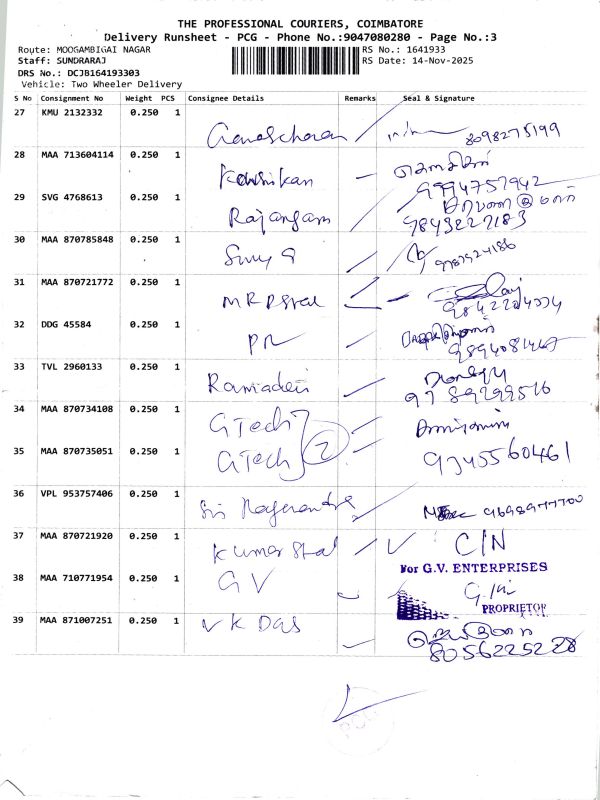 THE PROFESSIONAL COURIERS, COIMBATORE
Delivery Runsheet - PCG - Phone No.:9047080280 - Page No.:3
Route: MOOGAMBIGAI NAGAR
RS No.: 1641933
Staff: SUNDRARAJ
RS Date: 14-Nov-2025
DRS No.: DCJ8164193303
Vehicle: Two Wheeler Delivery
S No Consignment No Weight PCS Consignee Details Remarks Seal & Signature
27 KMU 2132332 0.250 1
8098275199
28 MAA 713604114 0.250 1 Kousikan
9994757942
29 SVG 4768613 0.250 1 Rajangam
9843227183
30 MAA 870785848 0.250 1
31 MAA 870721772 0.250 1
32 DDG 45584 0.250 1 PR
33 TVL 2960133 0.250 1
9789299516
34 MAA 870734108 0.250 1 GTech
35 MAA 870735051 0.250 1 GTech 2
9345560461
36 VPL 953757406 0.250 1 Sri
9698977700
37 MAA 870721920 0.250 1 Kumar C/N
For G.V. ENTERPRISES
38 MAA 710771954 0.250 1 GV
PROPRIETOR
39 MAA 871007251 0.250 1 VK Das
8056225228